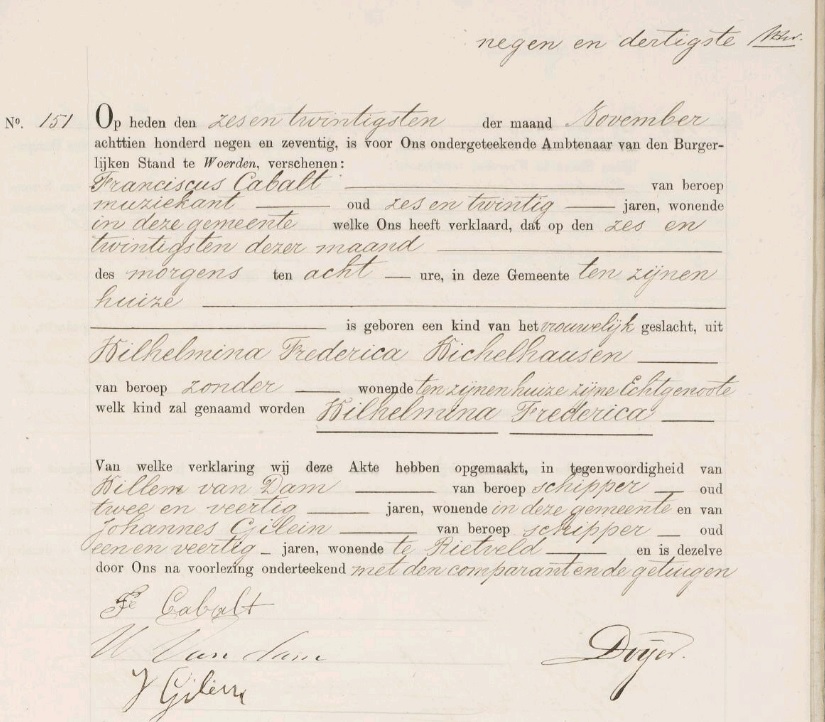 negen en dertigste
Nº. 151 Op heden den zesen twintigsten der maand November
achttien honderd negen en zeventig, is voor Ons ondergeteekende Ambtenaar van den Burger-
lijken Stand te Woerden, verschenen:
Franciscus Cabalt van beroep
muziekant oud zes en twintig jaren, wonende
in deze gemeente welke Ons heeft verklaard, dat op den zes en
twintigsten dezer maand
des morgens ten acht ure, in deze Gemeente ten zijnen
huize
is geboren een kind van het vrouwelijk geslacht, uit
Wilhelmina Frederica Wichelhausen
van beroep zonder wonende ten zijnen huize zijne Echtgenoote
welk kind zal genaamd worden Wilhelmina Frederica
Van welke verklaring wij deze Akte hebben opgemaakt, in tegenwoordigheid van
Willem van Dam van beroep schipper oud
twee en veertig jaren, wonende in deze gemeente en van
Johannes Gilein van beroep schipper oud
een en veertig jaren, wonende te Rietveld en is dezelve
door Ons na voorlezing onderteekend met den comparant en de getuigen
Cabalt
W van dam
Doijer.
J Gilein